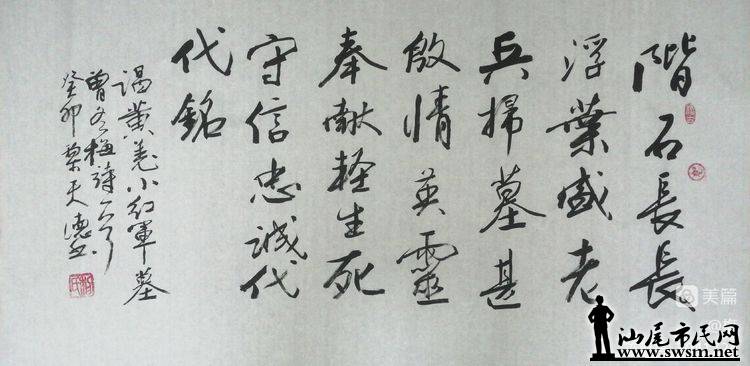 階石長長
浮葉盛老
兵掃墓甚
殷情英靈
奉獻輕生死
守信忠誠代
代銘
謁黄羌小紅軍墓
曾冬梅詩一首
癸卯天德書
美篇
汕尾市民网
www.swsm.net